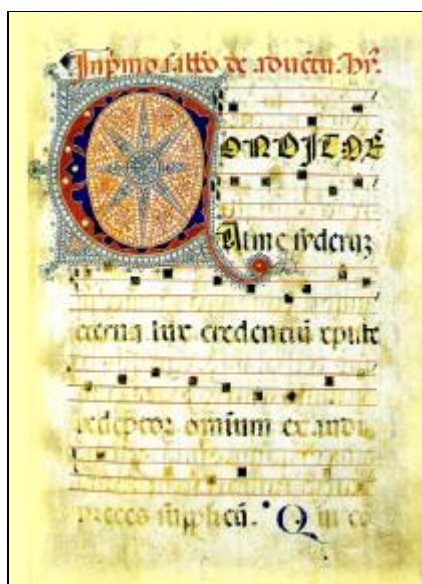 In pmo sabbo de aduētu. hȳ.
CONDITOR
Alme syderuz
eterna lux credentiū xpiste
redēptoz omium exaudi
preces supplicū. Qui co